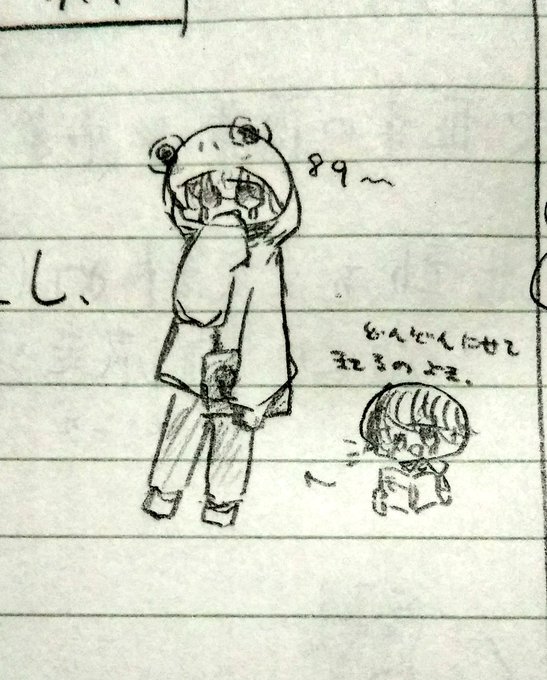 し、
89～
どんどんにせて
きてるのよき、